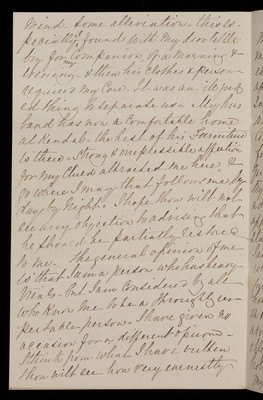 Mind. Some alleviation. This es-
pecially I found with my dear little
boy for my Companion, of a Morning &
Evening - & then his clothes & person
requires my Care. It was an
ed thing to separate us. My hus
band has now a Comfortable home
at Kendal. the best of his Furniture
is there. Strong & affection
for my Child me here, &
go where I may that follows me by
day by Night. I hope thou will not
see any objection to advising that
he should be partially restored
to me. The general opinion of me
is that I am a person who has heavy
trials. but I am Considered by all
who know me to be a thoroughly res-
pectable person. I have given no
occasion for a different opinion.
I think from what I have written
thou wilt see how very earnestly